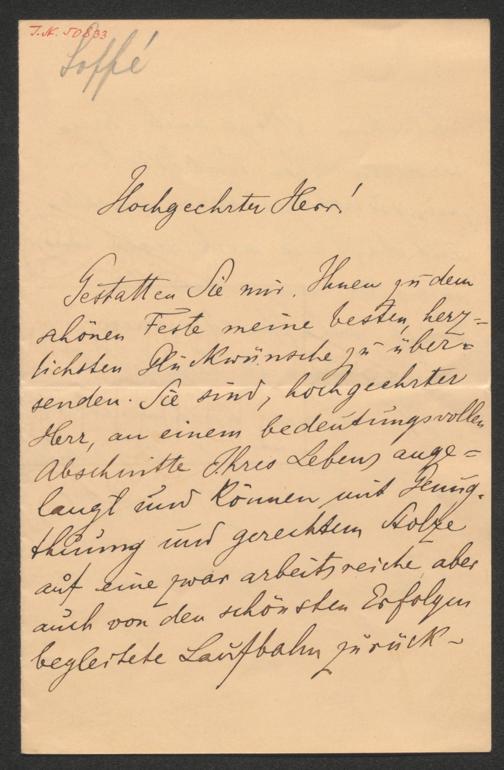 I.N. 50833
Soffé
Hochgeehrter Herr!
Gestatten Sie mir, Ihnen zu dem
schönen Feste meine besten, herz=
lichsten Glückwünsche zu über=
senden. Sie sind, hochgeehrter
Herr, an einem bedeutungsvollen
Abschnitte Ihres Lebens ange=
langt und können mit Genug-
thuung und gerechtem Stolze
auf eine zwar arbeitsreiche, aber
auch von den schönsten Erfolgen
begleitete Laufbahn zurück-